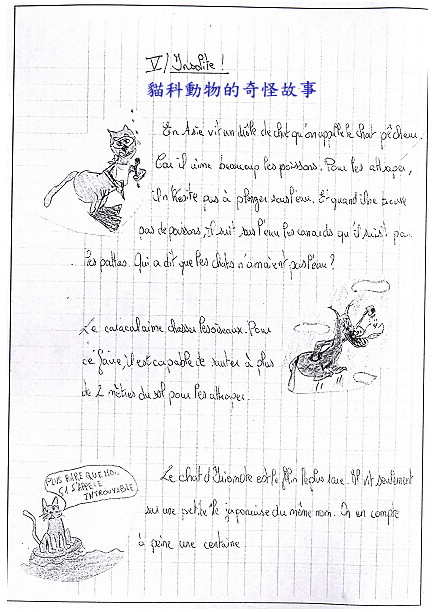 V/ Insolite !
貓科動物的奇怪故事
En Asie vit un drôle de chat qu'on appelle le chat pêcheur.
Car il aime beaucoup les poissons. Pour les attraper,
il n'hésite pas à plonger sous l'eau. Et quand il ne trouve
pas de poissons, il suit sous l'eau les canards qu'il saisit par
les pattes. Qui a dit que les chats n'aimaient pas l'eau ?
Le caracal aime chasser les oiseaux. Pour
ce faire, il est capable de sauter à plus
de 2 mètres du sol pour les attraper.
PLUS RARE QUE MOI,
ÇA S'APPELLE
INTROUVABLE
Le chat d'Iriomote est le félin le plus rare. Il vit seulement
sur une petite île japonaise du même nom. On en compte
à peine une centaine.